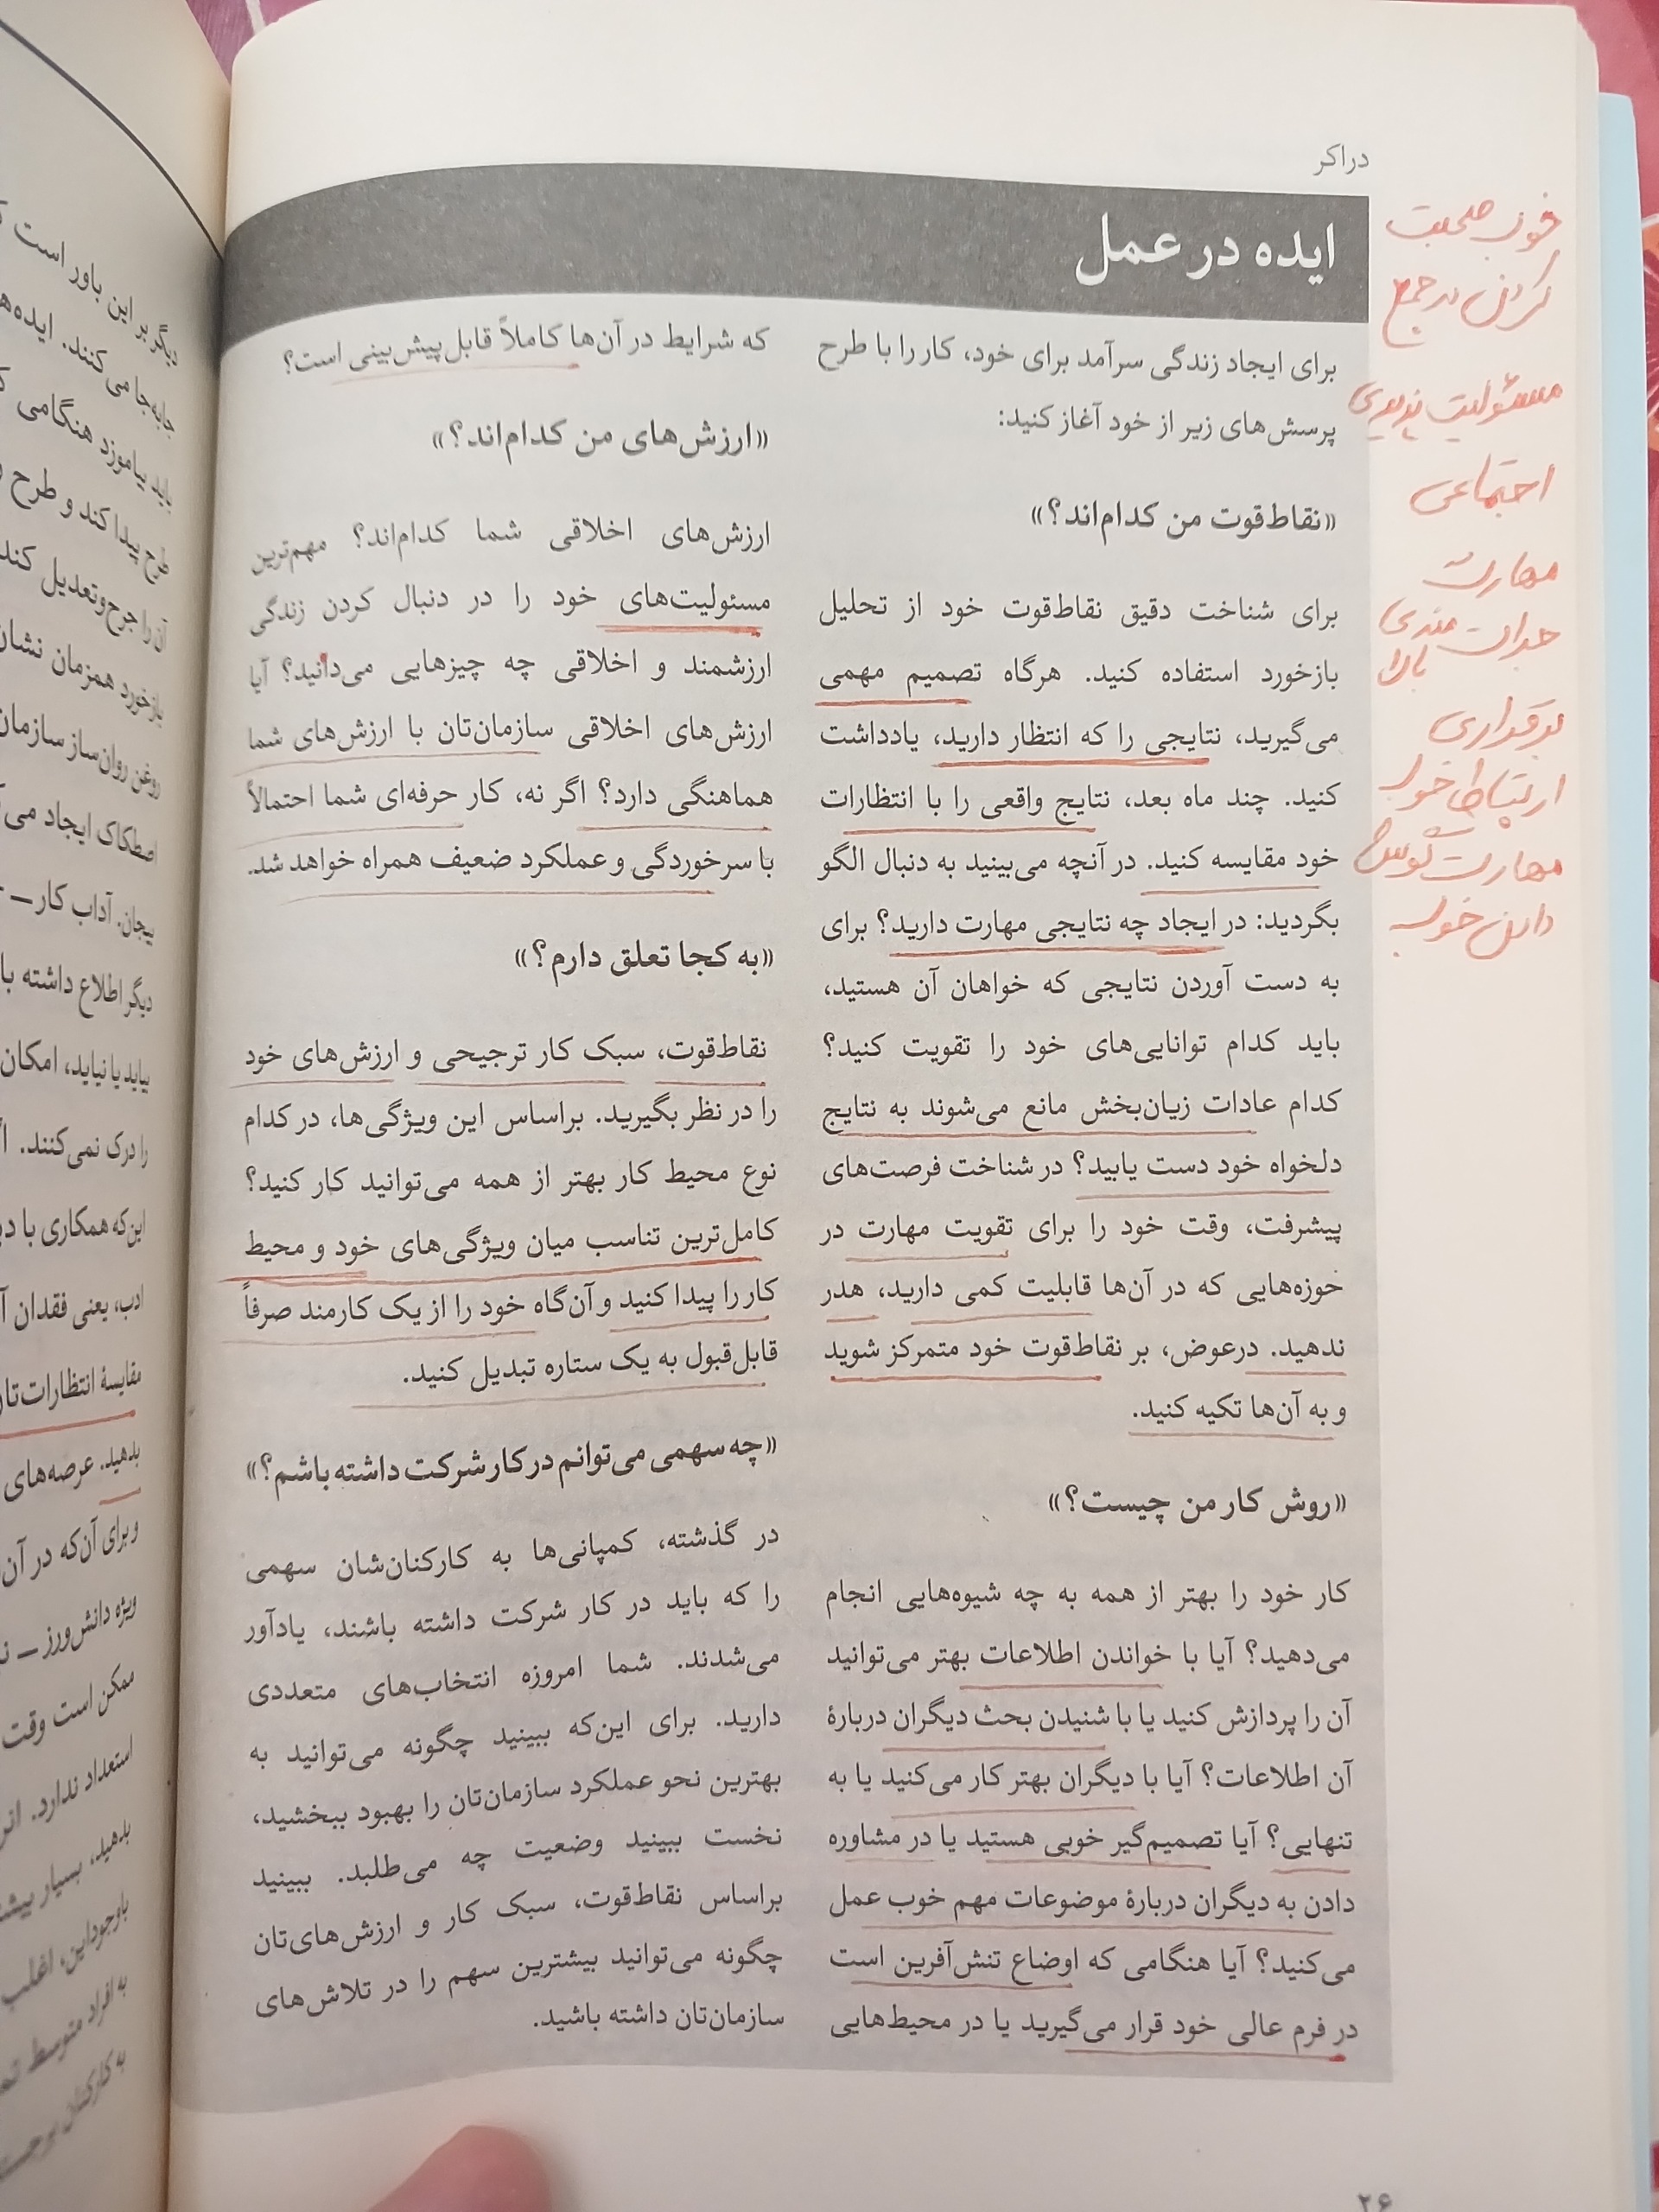 دراکر
ایده در عمل
برای ایجاد زندگی سرآمد برای خود، کار را با طرح
پرسش‌های زیر از خود آغاز کنید:
«نقاط‌قوت من کدام‌اند؟»
برای شناخت دقیق نقاط‌قوت خود از تحلیل
بازخورد استفاده کنید. هرگاه تصمیم مهمی
می‌گیرید، نتایجی را که انتظار دارید، یادداشت
کنید. چند ماه بعد، نتایج واقعی را با انتظارات
خود مقایسه کنید. در آنچه می‌بینید به دنبال الگو
بگردید: در ایجاد چه نتایجی مهارت دارید؟ برای
به دست آوردن نتایجی که خواهان آن هستید،
باید کدام توانایی‌های خود را تقویت کنید؟
کدام عادات زیان‌بخش مانع می‌شوند به نتایج
دلخواه خود دست یابید؟ در شناخت فرصت‌های
پیشرفت، وقت خود را برای تقویت مهارت در
حوزه‌هایی که در آن‌ها قابلیت کمی دارید، هدر
ندهید. درعوض، بر نقاط‌قوت خود متمرکز شوید
و به آن‌ها تکیه کنید.
«روش کار من چیست؟»
کار خود را بهتر از همه به چه شیوه‌هایی انجام
می‌دهید؟ آیا با خواندن اطلاعات بهتر می‌توانید
آن را پردازش کنید یا با شنیدن بحث دیگران دربارهٔ
آن اطلاعات؟ آیا با دیگران بهتر کار می‌کنید یا به
تنهایی؟ آیا تصمیم‌گیر خوبی هستید یا در مشاوره
دادن به دیگران دربارهٔ موضوعات مهم خوب عمل
می‌کنید؟ آیا هنگامی که اوضاع تنش‌آفرین است
در فرم عالی خود قرار می‌گیرید یا در محیط‌هایی
که شرایط در آن‌ها کاملاً قابل‌پیش‌بینی است؟
«ارزش‌های من کدام‌اند؟»
ارزش‌های اخلاقی شما کدام‌اند؟ مهم‌ترین
مسئولیت‌های خود را در دنبال کردن زندگی
ارزشمند و اخلاقی چه چیزهایی می‌دانید؟ آیا
ارزش‌های اخلاقی سازمان‌تان با ارزش‌های شما
هماهنگی دارد؟ اگر نه، کار حرفه‌ای شما احتمالاً
با سرخوردگی و عملکرد ضعیف همراه خواهد شد.
«به کجا تعلق دارم؟»
نقاط‌قوت، سبک کار ترجیحی و ارزش‌های خود
را در نظر بگیرید. براساس این ویژگی‌ها، در کدام
نوع محیط کار بهتر از همه می‌توانید کار کنید؟
کامل‌ترین تناسب میان ویژگی‌های خود و محیط
کار را پیدا کنید و آن‌گاه خود را از یک کارمند صرفاً
قابل‌قبول به یک ستاره تبدیل کنید.
«چه سهمی می‌توانم در کار شرکت داشته باشم؟»
در گذشته، کمپانی‌ها به کارکنان‌شان سهمی
را که باید در کار شرکت داشته باشند، یادآور
می‌شدند. شما امروزه انتخاب‌های متعددی
دارید. برای این‌که ببینید چگونه می‌توانید به
بهترین نحو عملکرد سازمان‌تان را بهبود ببخشید،
نخست ببینید وضعیت چه می‌طلبد. ببینید
براساس نقاط‌قوت، سبک کار و ارزش‌های‌تان
چگونه می‌توانید بیشترین سهم را در تلاش‌های
سازمان‌تان داشته باشید.
خوب صحبت
کردن در جمع
مسئولیت پذیری
اجتماعی
مهارت
بالا
برقراری
ارتباط خوب
مهارت گوش
دادن خوب
۲۶
دیگر بر این باور است
جابه‌جا می‌کنند. ایده‌ه
باید بیاموزد هنگامی
طرح پیدا کند و طرح
آن را جرح‌وتعدیل کند
بازخورد همزمان نشان
روغن روان‌ساز سازمان
اصطکاک ایجاد می
بیجان. آداب کار ــ
دیگر اطلاع داشته با
بیاید یا نیاید، امکان
را درک نمی‌کنند.
این‌که همکاری با
ادب، یعنی فقدان
مقایسهٔ انتظارات‌تا
بدهید. عرصه‌های
و برای آن‌که در آن
ویژه دانش‌ورز ــ
ممکن است وقت
استعداد ندارد.
بدهید، بسیار
باوجوداین، اغلب
به افراد متوسط